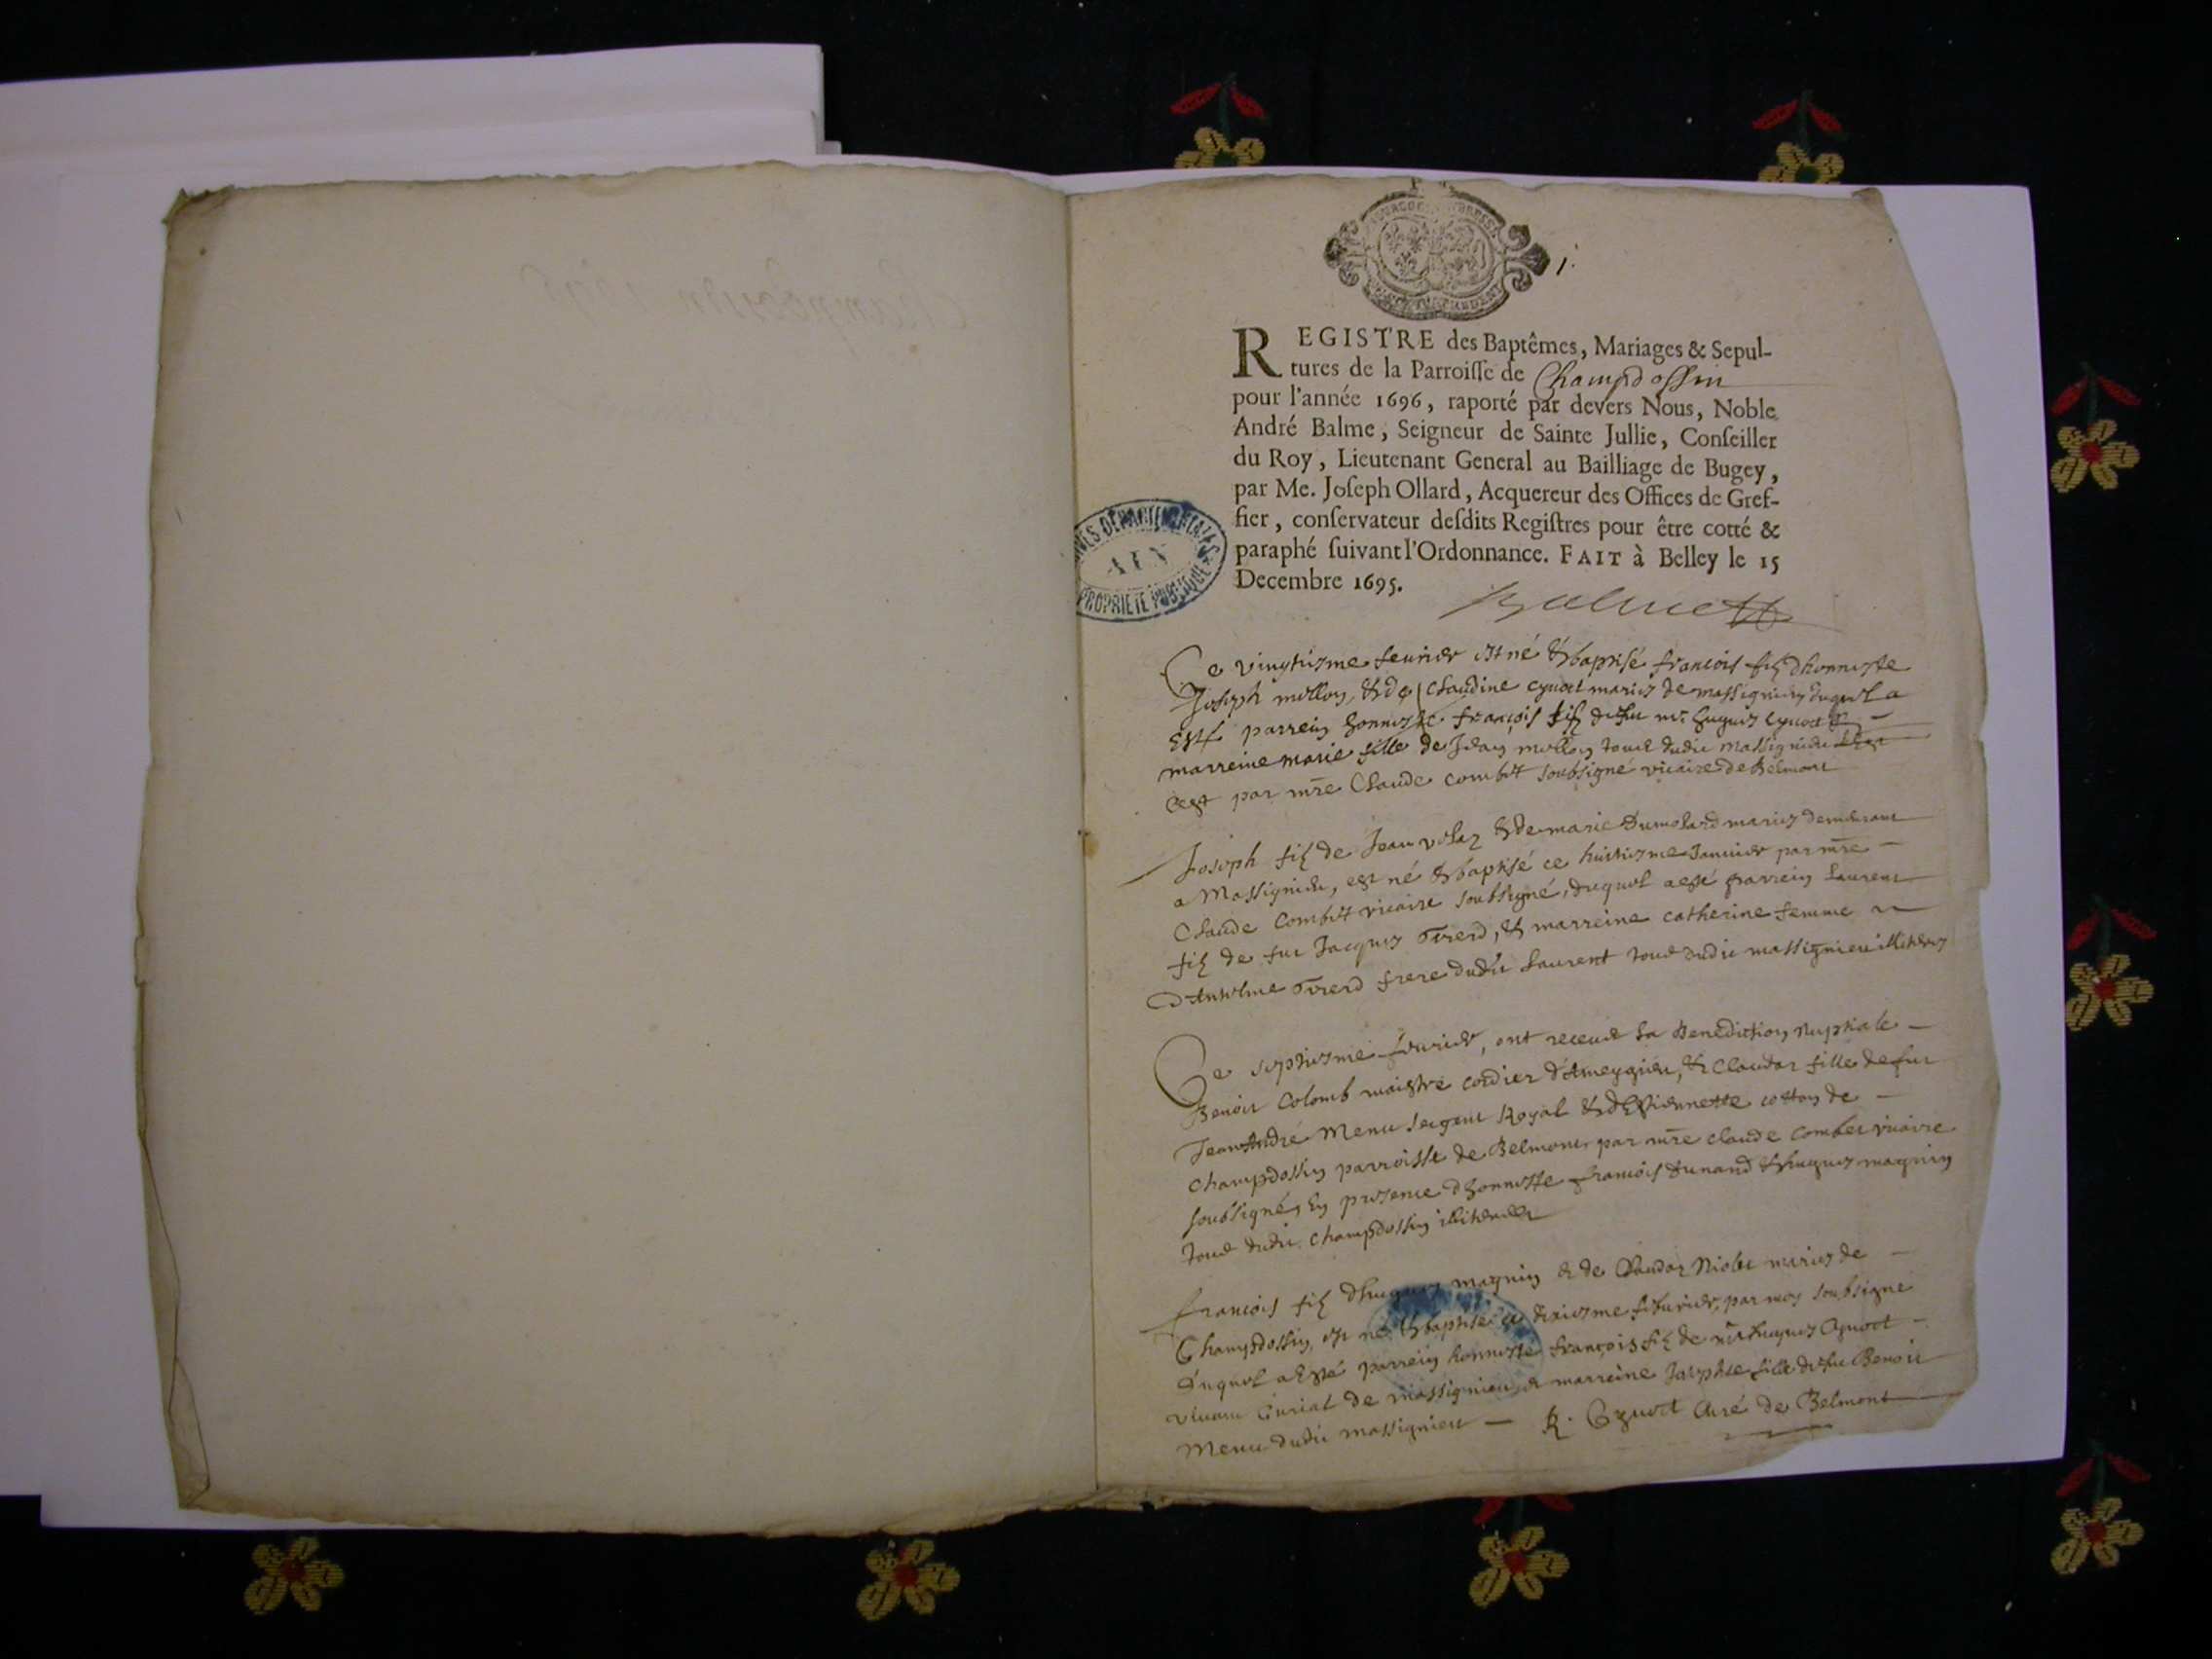 1.
REGISTRE des Baptêmes, Mariages & Sepul-
tures de la Parroisse de Champdossin
pour l'année 1696, raporté par devers Nous, Noble
André Balme, Seigneur de Sainte Jullie, Conseiller
du Roy, Lieutenant General au Bailliage de Bugey,
par Me. Joseph Ollard, Acquereur des Offices de Gref-
fier, conservateur desdits Registres pour être cotté &
paraphé suivant l'Ordonnance. FAIT à Belley le 15
Decembre 1695.
Balme
AIN
PROPRIETE PUBLIQUE
Ce vingtiesme feurier est né & baptisé francois filz dhonneste
Joseph mollon, & de Claudine cyuoct mariez de massignieu duquel a
esté parrein honneste françois filz de feu mr. huguez Cyuoct &
marreine marie fille de Jean mollon tous dudit massignieu
par mre Claude combet soubsigné vicaire de Belmont
Joseph filz de Jean velaz & de marie Dumolard mariez demeurant
a Massignieu, est né & baptisé ce huictiesme Januier par mre
Claude Combet vicaire soubsigné, duquel a esté parrein Laurent
filz de feu Jacquez Tirerd, & marreine catherine femme
d'Anselme Tirerd frere dudit Laurent tous dudit massignieu illiterez
Ce septiesme feurier, ont receue la Benediction Nuptiale
Benoit Colomb maistre cordier d'Ameyzieu, & Claudaz fille de feu
Jean André Menu sergent Royal & d'Estiennette cotton de
champdossin parroisse de Belmont par mre claude combet vicaire
soubsigné, En presence dhonneste francois Dunand & huguez magnin
tous dudit champdossin illiterez
francois filz dhuguez magnin & de Claudaz Niolet mariez de
Champdossin, est né & baptisé ce dixiesme feburier, par moy soubsigné
duquel a Esté parrein honneste françois filz de mr huguez Cyuoct
viuant Curial de massignieu, & marreine Josephte fille de feu Benoit
Menu dudit massignieu — Cyuoct Curé de Belmont